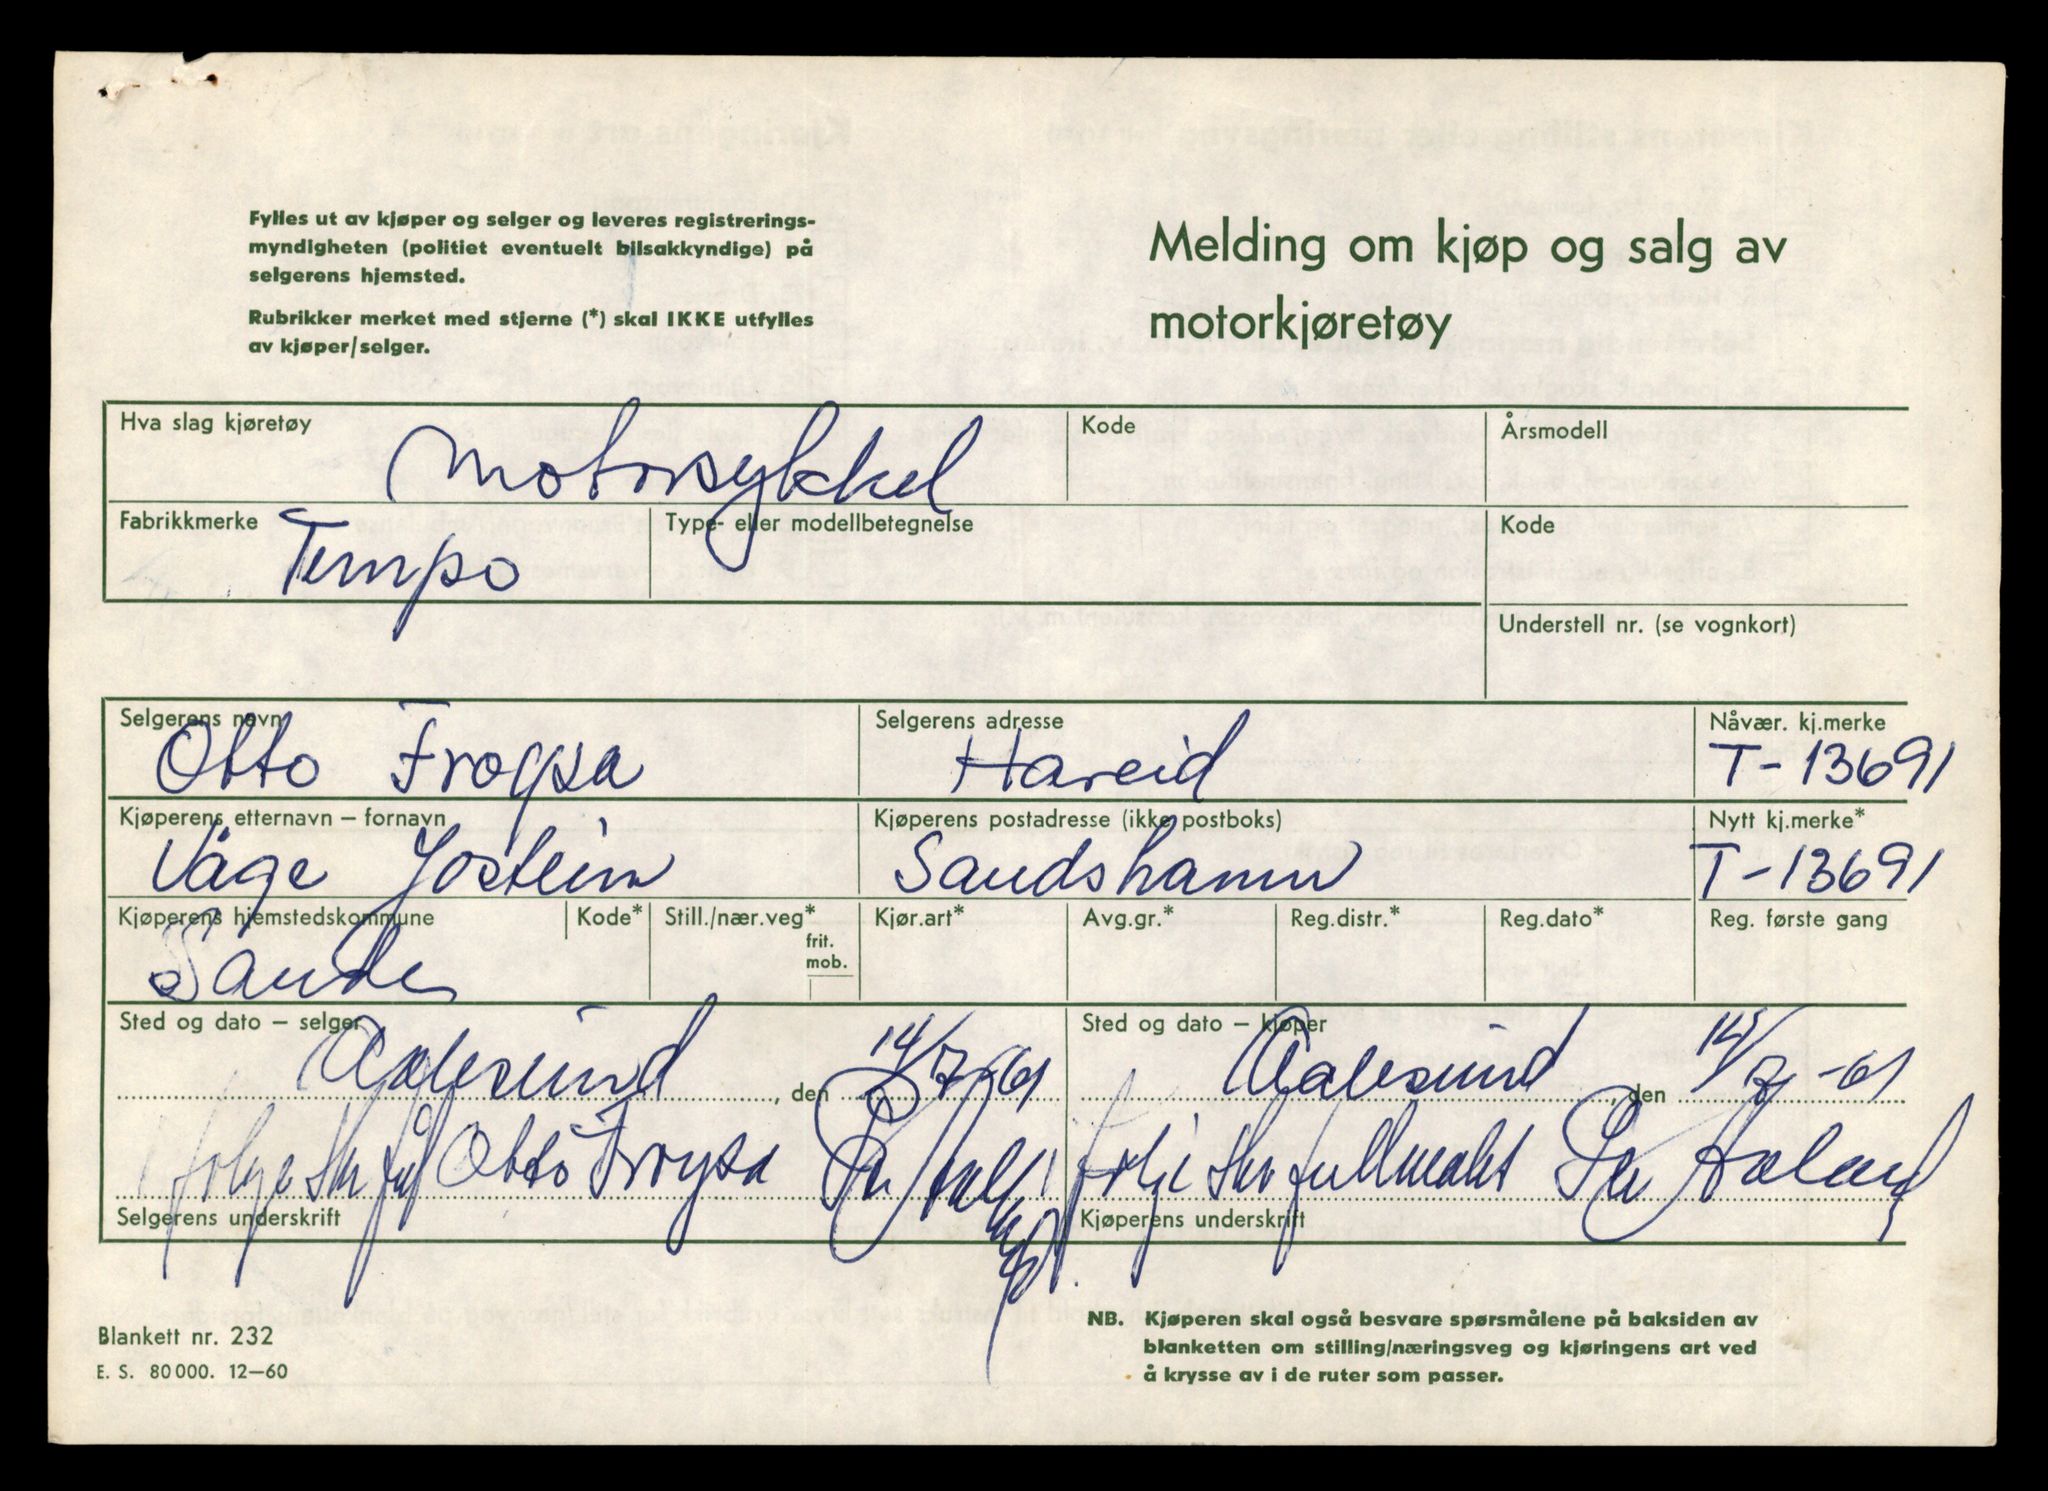 Fylles ut av kjøper og selger og leveres registrerings-
myndigheten (politiet eventuelt bilsakkyndige) på
selgerens hjemsted.
Rubrikker merket med stjerne (*) skal IKKE utfylles
av kjøper/selger.
Melding om kjøp og salg av
motorkjøretøy
Hva slag kjøretøy Motorsykkel Kode Årsmodell
Fabrikkmerke Tempo Type- eller modellbetegnelse Kode
Understell nr. (se vognkort)
Selgerens navn Selgerens adresse Nåvær. kj.merke
Otto Frøysa Hareid T-13691
Kjøperens etternavn – fornavn Kjøperens postadresse (ikke postboks) Nytt kj.merke*
Våge Jostein Sandshamn T-13691
Kjøperens hjemstedskommune Kode* Still./nær.veg* frit. mob. Kjør.art* Avg.gr.* Reg.distr.* Reg.dato* Reg. første gang
Sande
Sted og dato – selger Sted og dato – kjøper
Aalesund, den 14/7-61 Aalesund, den 14/7-61
Otto Frøysa Per ifølge skr fullmakt Per
Selgerens underskrift Kjøperens underskrift
Blankett nr. 232
E. S. 80 000. 12–60
NB. Kjøperen skal også besvare spørsmålene på baksiden av
blanketten om stilling/næringsveg og kjøringens art ved
å krysse av i de ruter som passer.